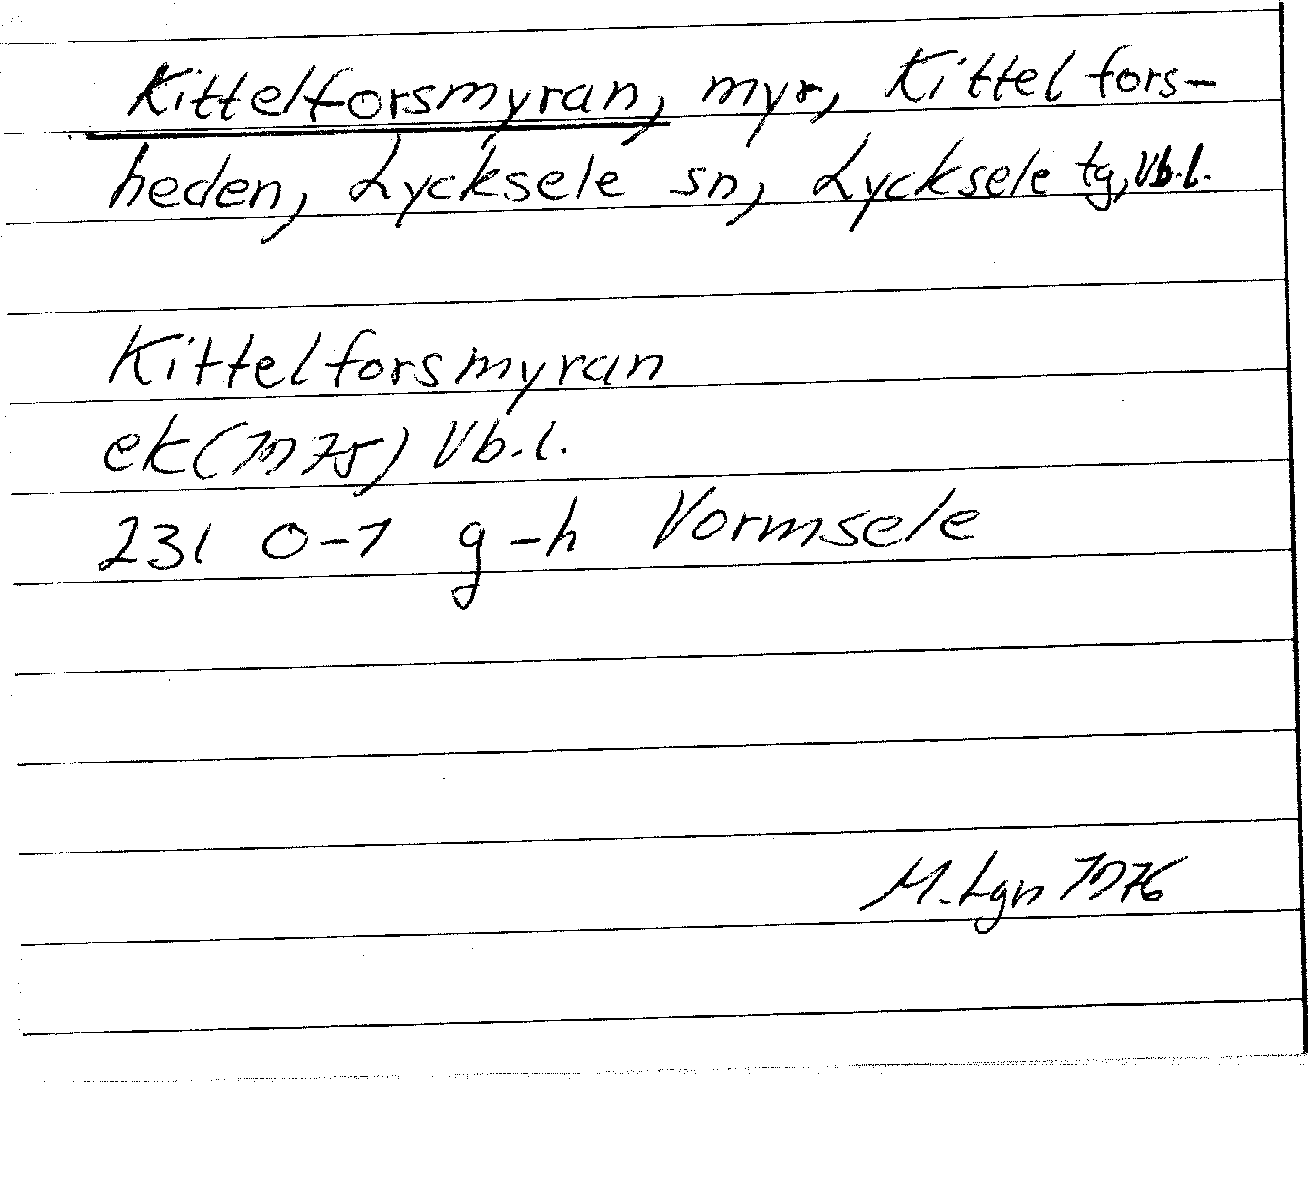 Kittelforsmyran, myr, Kittelfors-
heden, Lycksele sn, Lycksele tg, Vb.l.
Kittelforsmyran
ek (1975) Vb.l.
23I 0-1 g-h Vormsele
M. Lgn 1976